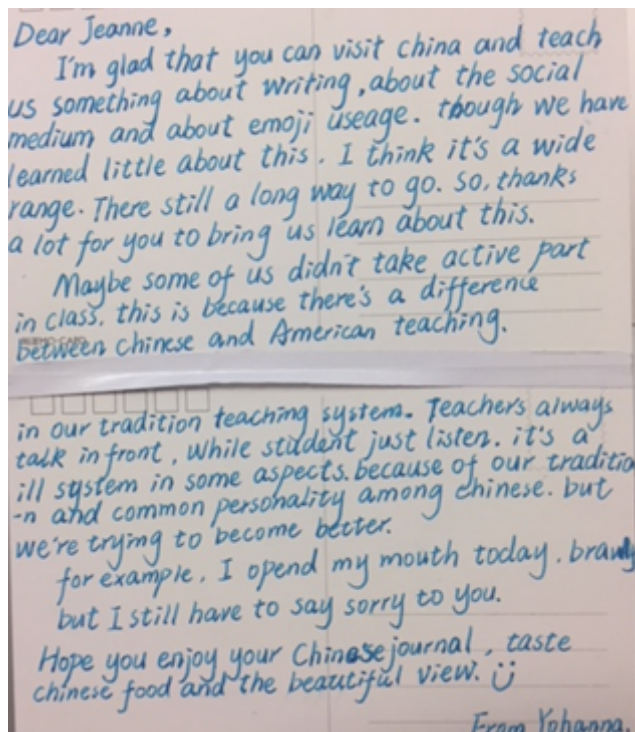 Dear Jeanne,
I'm glad that you can visit china and teach
us something about writing, about the social
medium and about emoji useage. though we have
learned little about this. I think it's a wide
range. There still a long way to go. So, thanks
a lot for you to bring us learn about this.
Maybe some of us didn't take active part
in class. this is because there's a difference
between chinese and American teaching.
in our tradition teaching system. Teachers always
talk in front, while student just listen. it's a
ill system in some aspects. because of our traditio
-n and common personality among chinese. but
we're trying to become better.
for example, I opend my mouth today. bravly
but I still have to say sorry to you.
Hope you enjoy your Chinese journal, taste
chinese food and the beautiful view. ü
From Yohanna.